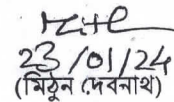 23/01/24
(মিঠুন দেবনাথ)